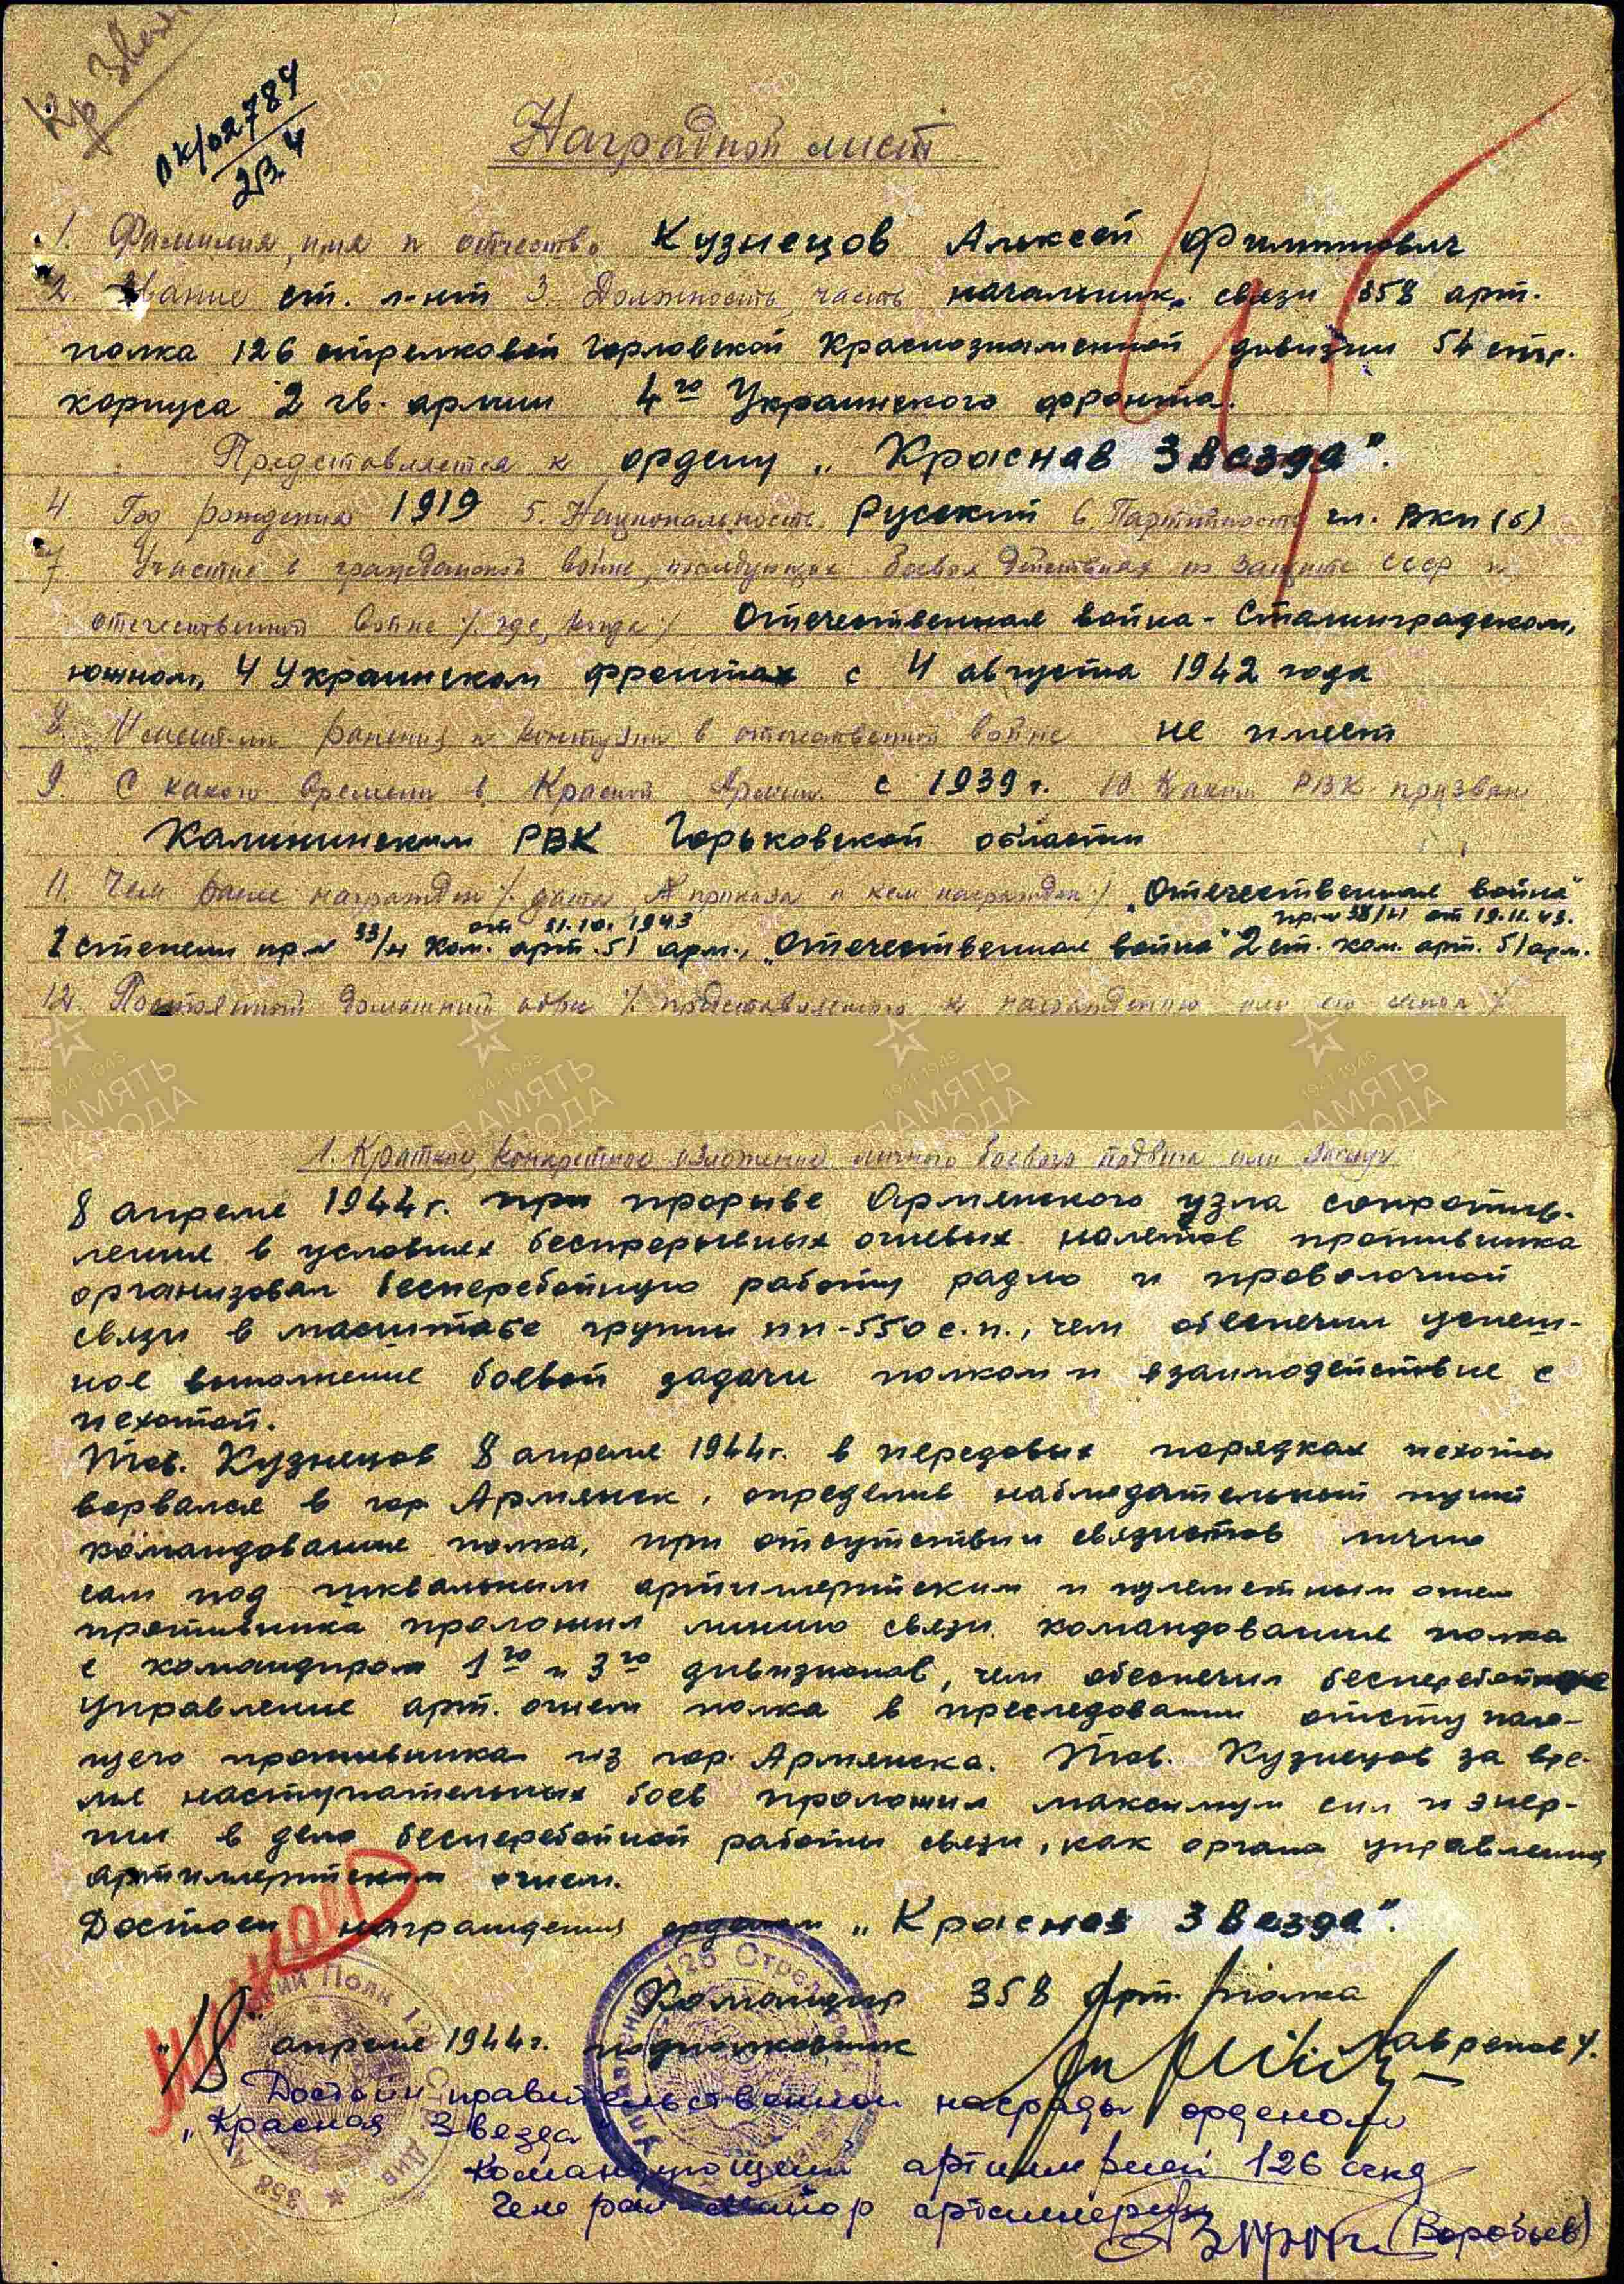 Кр Звез
ОК/02789
23 4
Наградной лист
1. Фамилия, имя и отчество Кузнецов Алексей Филиппович
2. Звание ст. л-нт 3. Должность, часть начальник связи 358 арт.
полка 126 стрелковой Горловской Краснознаменной дивизии 54 стр.
корпуса 2 гв. армии 4го Украинского фронта.
Представляется к ордену „Красная Звезда".
4. Год рождения 1919 5. Национальность русский 6. Партийность чл. ВКП(б)
7. Участие в гражданской войне, последующих боевых действиях по защите СССР и
отечественной войне /. где, когда/. Отечественная война - Сталинградском,
южном, 4 Украинском фронтах с 4 августа 1942 года
8. Имеет-ли ранения и контузии в отечественной войне не имеет
9. С какого времени в Красной Армии с 1939 г. 10. Каким РВК призван
Калининским РВК Горьковской области
11. Чем ранее награжден /. дата, № приказа и кем награжден /. „Отечественная война"
от 31.10.1943 пр.№ 38/н от 19.11.43.
2 степени пр.№ 33/н ком. арт. 51 арм., „Отечественная война" 2 ст. ком. арт. 51 арм.
12. Постоянный домашний адрес /. представляемого к награждению или его семьи /.
1. Краткое, конкретное изложение личного боевого подвига или заслуг
8 апреля 1944 г. при прорыве Армянского узла сопротив-
ления в условиях беспрерывных огневых налетов противника
организовал бесперебойную работу радио и проволочной
связи в масштабе группы пп-550 с.п., чем обеспечил успеш-
ное выполнение боевой задачи полком и взаимодействие с
пехотой.
Тов. Кузнецов 8 апреля 1944 г. в передовых порядках пехоты
ворвался в гор. Армянск, определив наблюдательный пункт
командования полка, при отсутствии связистов лично
сам под шквальным артиллерийским и пулеметным огнем
противника проложил линию связи командования полка
с командиром 1го и 3го дивизионов, чем обеспечил бесперебойное
управление арт. огнем полка в преследовании отступаю-
щего противника из гор. Армянска. Тов. Кузнецов за вре-
мя наступательных боев проложил максимум сил и энер-
гии в дело бесперебойной работы связи, как органа управления
артиллерийским огнем.
Достоин награждения орденом „Красная Звезда".
Командир 358 Арт. полка
„18" апреля 1944 г. подполковник Лавренов
Достоин правительственной награды орденом
„Красная Звезда"
Командующий артиллерией 126 скд
Генерал-майор артиллерии
(Воробьев)